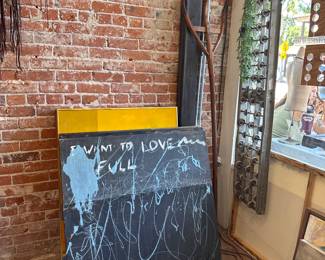 I WANT TO LOVE
FULL